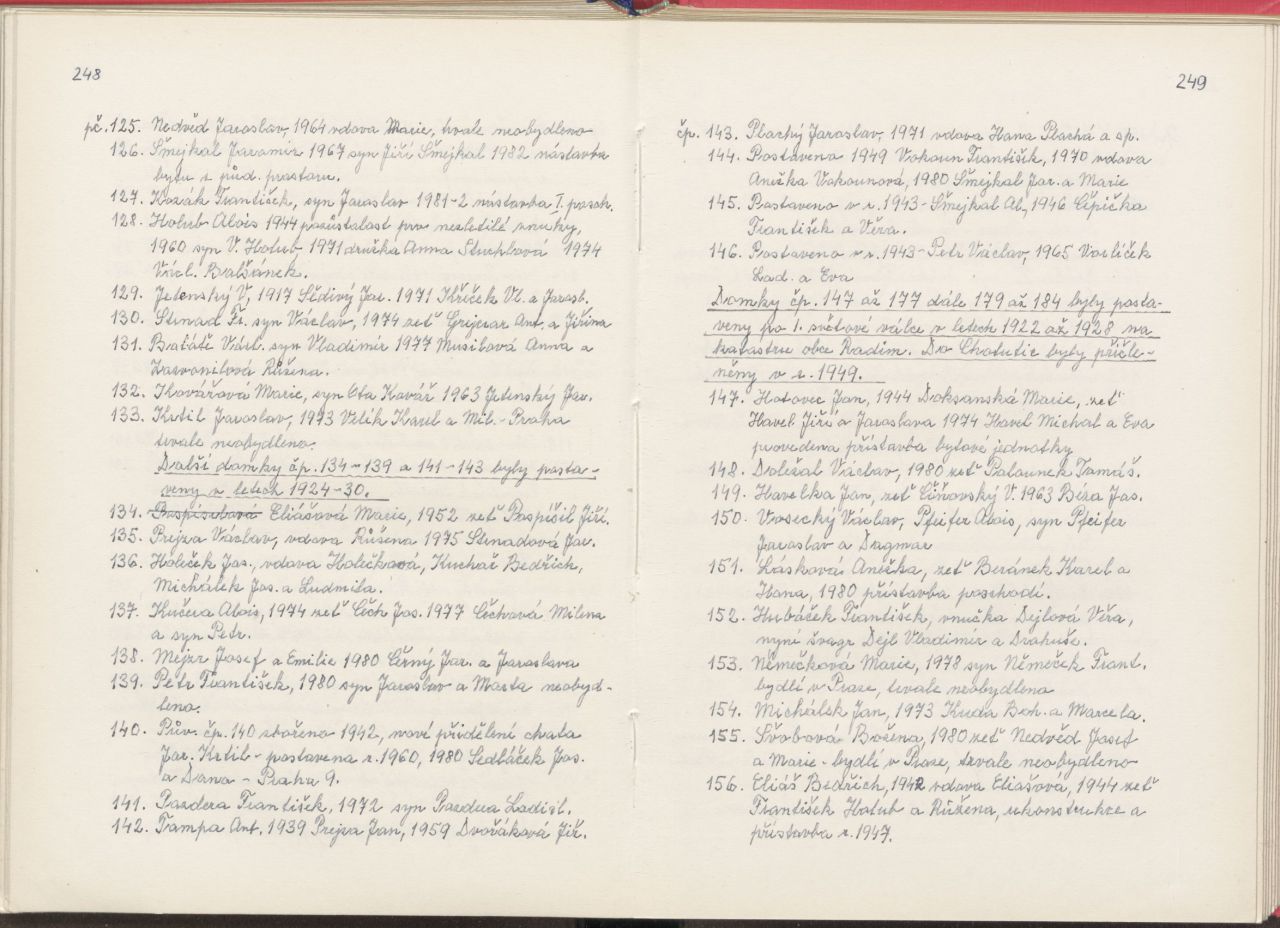 248
pč. 125. Nedvěd Jaroslav, 1964 vdova Marie, trvale neobydleno
126. Šmejkal Jaromír 1967 syn Jiří Šmejkal 1982 nástavba
bytu z půd. prostoru.
127. Kozák František, syn Jaroslav 1981-2 nástavba I. posch.
128. Holub Alois 1944 pozůstalost pro nezletilé vnuky,
1960 syn V. Holub, 1971 družka Anna Stuchlová 1974
Václ. Balšánek.
129. Jetenský V, 1917 Šedivý Jar. 1971 Kříček Vl. a Jarosl.
130. Stinad Fr. syn Václav, 1974 zeť Ant. a Jiřina
131. Vladimír 1977 Musilová Anna a
Růžena.
132. Kovářová Marie, syn Ota Kovář 1963 Jetenský Jar.
133. Krtil Jaroslav, 1973 Velík Karel a Mil. - Praha
trvale neobydleno.
Další domky čp. 134-139 a 141-143 byly posta-
veny v letech 1924-30.
134. Pospíšilová Eliášová Marie, 1952 zeť Pospíšil Jiří.
135. Prejza Václav, vdova Růžena 1975 Stinadová Jar.
136. Holeček Jos., vdova Holečková, Kuchař Bedřich,
Michálek Jos. a Ludmila.
137. Kučera Alois, 1974 zeť Čech Jos. 1977 Čechová Milena
a syn Petr.
138. Mejzr Josef a Emilie 1980 Černý Jar. a Jaroslava
139. Petr František, 1980 syn Jaroslav a Vlasta neobyd-
leno.
140. Pův. čp. 140 zbořeno 1942, nové přidělení chata
Jar. Krtil - postavena r. 1960, 1980 Sedláček Jos.
a Dana - Praha 9.
141. Pazdera František, 1972 syn Pazdera Ladisl.
142. Tampa Ant. 1939 Prejza Jan, 1959 Dvořáková Jiř.
249
čp. 143. Plachý Jaroslav, 1971 vdova Hana Plachá a sp.
144. Postaveno 1949 Vokoun František, 1970 vdova
Anežka Vokounová, 1980 Šmejkal Jar. a Marie
145. Postaveno v r. 1943- Šmejkal Al., 1946 Čepička
František a Věra.
146. Postaveno v r. 1943- Petr Václav, 1965 Vorlíček
Lad. a Eva
Domky čp. 147 až 177 dále 179 až 184 byly posta-
veny po 1. světové válce v letech 1922 až 1928 na
katastru obce Radim. Do Chotutic byly přičle-
něny v r. 1949.
147. Hotovec Jan, 1944 Doksanská Marie, zeť
Havel Jiří a Jaroslava 1974 Havel Michal a Eva
provedena přístavba bytové jednotky
148. Doležal Václav, 1980 zeť Palounek Tomáš.
149. Havelka Jan, zeť Cíňovský V. 1963 Béra Jos.
150. Vosecký Václav, Pfeifer Alois, syn Pfeifer
Jaroslav a Dagmar
151. Lásková Anežka, zeť Beránek Karel a
Hana, 1980 přístavba poschodí.
152. Hubáček František, vnučka Dejlová Věra,
nyní švagr Dejl Vladimír a Drahuše.
153. Němečková Marie, 1978 syn Němeček Frant.
bydlí v Praze, trvale neobydleno
154. Michálek Jan, 1973 Kuda Boh. a Marcela.
155. Švobová Božena, 1980 zeť Nedvěd Josef
a Marie - bydlí v Praze, trvale neobydleno
156. Eliáš Bedřich, 1942 vdova Eliášová, 1944 zeť
František Holub a Růžena, rekonstrukce a
přístavba r. 1947.